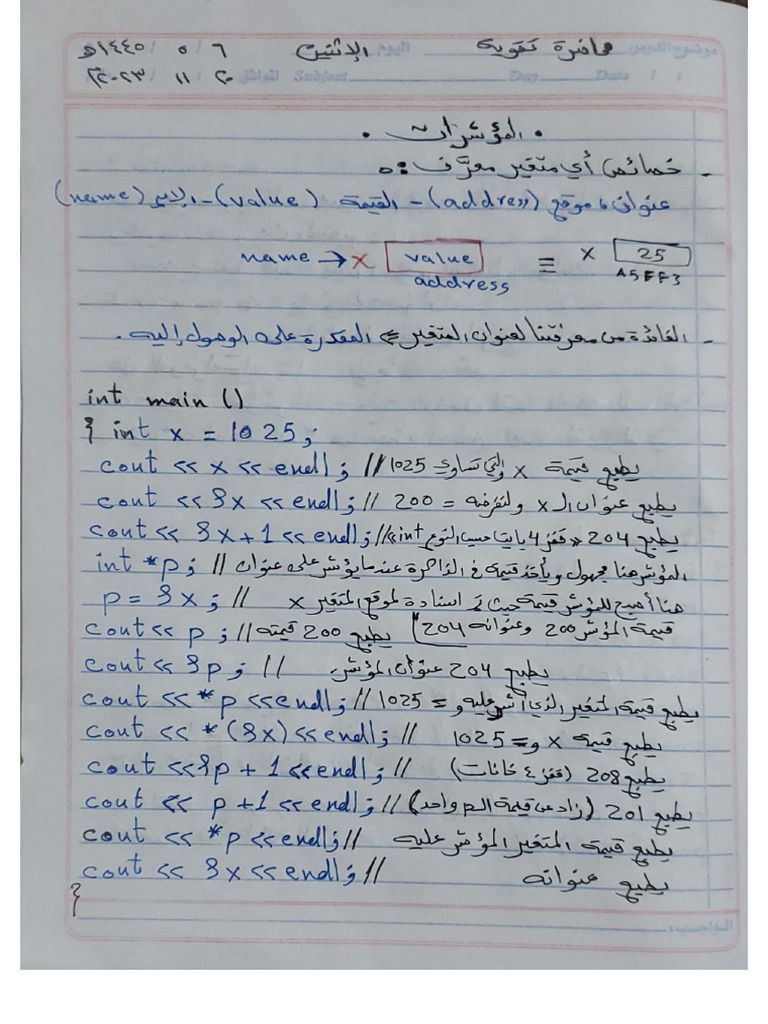 موضوع الدرس محاضرة تقوية اليوم الإثنين ٦ / ٥ / ١٤٤٥هـ
Date / / Day Subject التوافق ٢٠ / ١١ / ٢٠٢٣م
• المؤشرات •
- خصائص أي متغير معرَّف :
عنوان، موقع (address) - القيمة (value) - الاسم (name)
name → x value ≡ x 25
address A5FF3
- الفائدة من معرفتنا لعنوان المتغير ⇐ المقدرة على الوصول إليه.
int main ()
{ int x = 1025;
cout << x << endl; // يطبع قيمة x والتي تساوي 1025
cout << &x << endl; // يطبع عنوان الـ x ولنفرضه = 200
cout << &x + 1 << endl; // يطبع 204 «قفز 4 بايت حسب النوع int»
int *p; // المؤشر هنا مجهول ويأخذ قيمة في الذاكرة عندما يؤشر على عنوان
p = &x; // هنا أصبح للمؤشر قيمة حيث تم اسنادة لموقع المتغير x
cout << p; // يطبع 200 قيمته [قيمة المؤشر 200 وعنوانه 204
cout << &p; // يطبع 204 عنوان المؤشر
cout << *p << endl; // يطبع قيمة المتغير الذي أشر عليه و = 1025
cout << *(&x) << endl; // يطبع قيمة x و = 1025
cout << &p + 1 << endl; // يطبع 208 (قفز ٤ خانات)
cout << p + 1 << endl; // يطبع 201 (زاد عن قيمة الـ p واحد)
cout << *p << endl; // يطبع قيمة المتغير المؤشر عليه
cout << &x << endl; // يطبع عنوانه
}
الواجب: